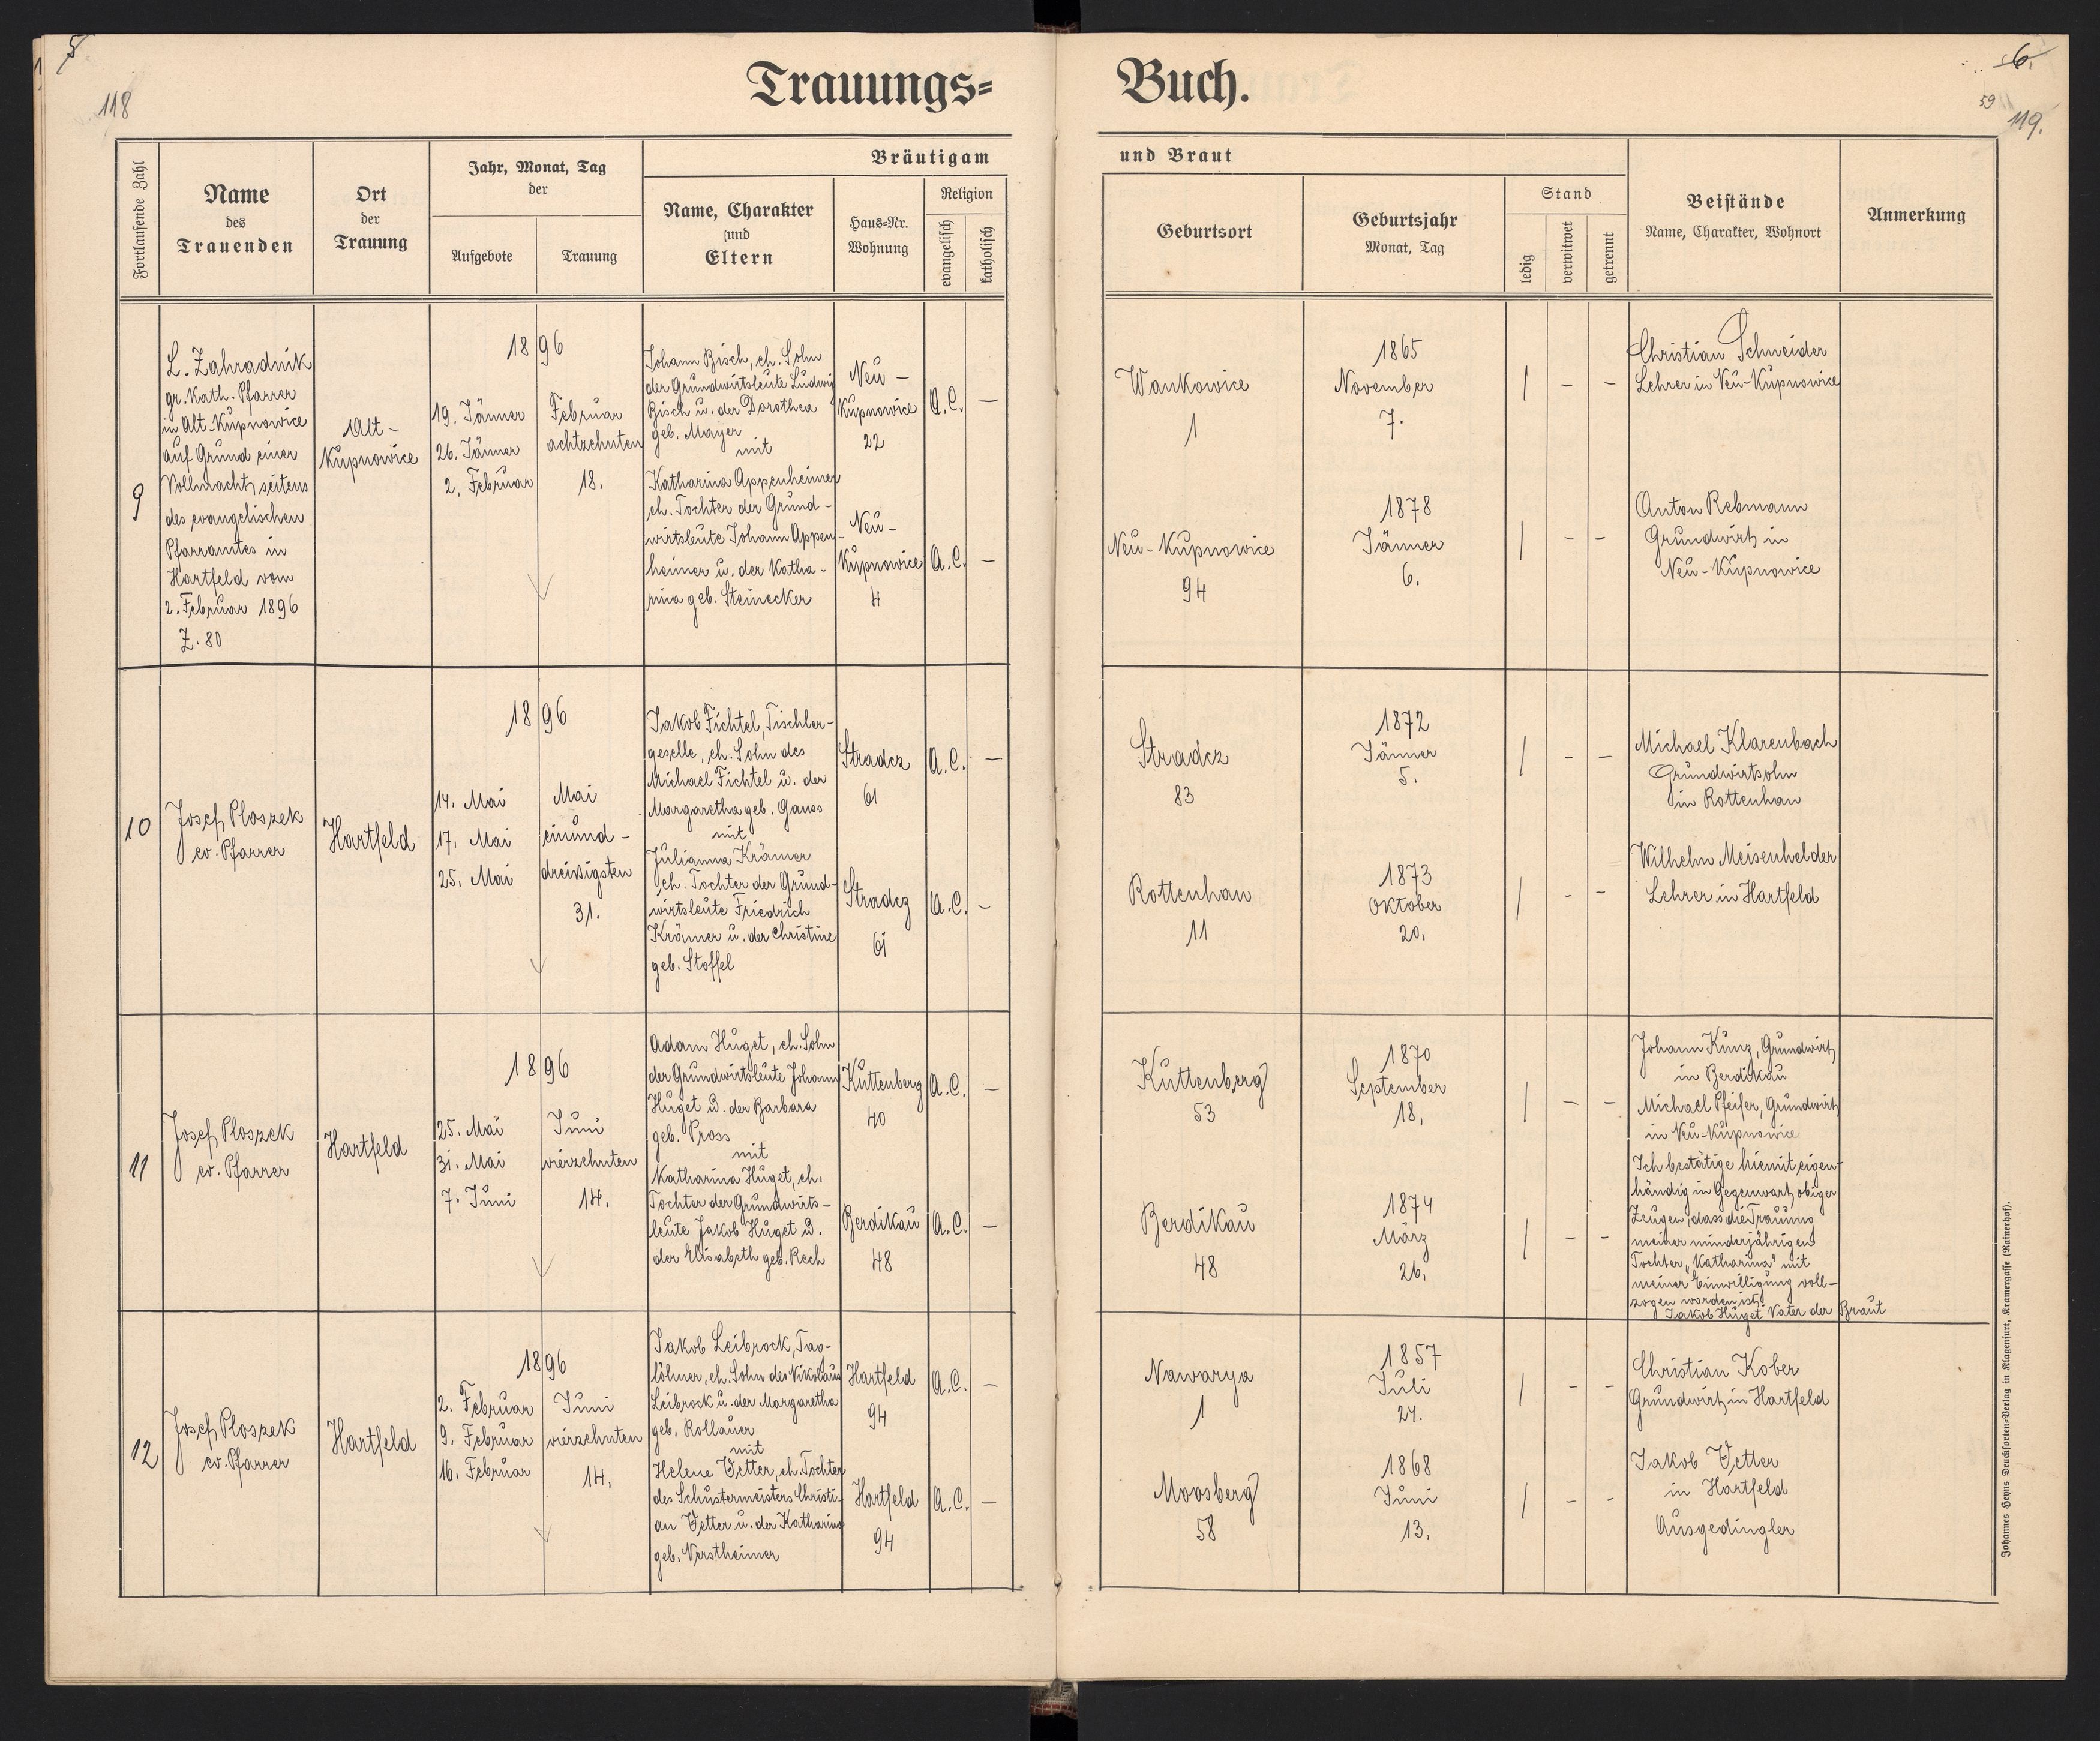 5
118
Trauungs=
Fortlaufende Zahl
Name
des
Trauenden
Ort
der
Trauung
Jahr, Monat, Tag
der
Aufgebote
Trauung
Bräutigam
Name, Charakter
und
Eltern
Haus=Nr.
Wohnung
Religion
evangelisch
katholisch
9
L. Zahradnik
gr. Kath. Pfarrer
in Alt-Kupnowice
auf Grund einer
Vollmacht seitens
des evangelischen
Pfarramtes in
Hartfeld vom
2. Februar 1896
Z. 80
Alt-
Kupnowice
1896
19. Jänner
26. Jänner
2. Februar
Februar
achtzehnten
18.
Johann Bisch, eh. Sohn
der Grundwirtsleute Ludwig
Bisch u. der Dorothea
geb. Mayer
mit
Katharina Appenheimer
eh. Tochter der Grund-
wirtsleute Johann Appen-
heimer u. der Katha-
rina geb. Steinecker
Neu-
Kupnowice
22
Neu-
Kupnowice
4
A.C. —
A.C. —
10
Josef Ploszek
ev. Pfarrer
Hartfeld
1896
14. Mai
17. Mai
25. Mai
Mai
einund-
dreissigsten
31.
Jakob Fichtel, Tischler-
geselle, eh. Sohn des
Michael Fichtel u. der
Margaretha geb. Gauss
mit
Julianna Krämer
eh. Tochter der Grund-
wirtsleute Friedrich
Krämer u. der Christine
geb. Stoffel
Stradcz
61
Stradcz
61
A.C. —
A.C. —
11
Josef Ploszek
ev. Pfarrer
Hartfeld
1896
25. Mai
31. Mai
7. Juni
Juni
vierzehnten
14.
Adam Huget, eh. Sohn
der Grundwirtsleute Johann
Huget u. der Barbara
geb. Pross
mit
Katharina Huget, eh.
Tochter der Grundwirts-
leute Jakob Huget u.
der Elisabeth geb. Rech
Kuttenberg
40
Berdikau
48
A.C. —
A.C. —
12
Josef Ploszek
ev. Pfarrer
Hartfeld
1896
2. Februar
9. Februar
16. Februar
Juni
vierzehnten
14.
Jakob Leibrock, Tag-
löhner, eh. Sohn des Nikolaus
Leibrock u. der Margaretha
geb. Rollauer
mit
Helene Vetter, eh. Tochter
des Schustermeisters Christi-
an Vetter u. der Katharina
geb. Nerstheimer
Hartfeld
94
Hartfeld
94
A.C. —
A.C. —
6.
59
119.
Buch.
und Braut
Geburtsort
Geburtsjahr
Monat, Tag
Stand
ledig
verwitwet
getrennt
Beistände
Name, Charakter, Wohnort
Anmerkung
Wankowice
1
1865
November
7.
/ - -
Christian Schneider
Lehrer in Neu-Kupnowice
Neu-Kupnowice
94
1878
Jänner
6.
/ - -
Anton Rebmann
Grundwirt in
Neu-Kupnowice
Stradcz
83
1872
Jänner
5.
/ - -
Michael Klarenbach
Grundwirtsohn
in Rottenhan
Rottenhan
11
1873
Oktober
20.
/ - -
Wilhelm Meisenhelder
Lehrer in Hartfeld
Kuttenberg
53
1870
September
18.
/ - -
Johann Kunz, Grundwirt
in Berdikau
Michael Pfeifer, Grundwirt
in Neu-Kupnowice
Berdikau
48
1874
März
26.
/ - -
Ich bestätige hiemit eigen-
händig in Gegenwart obiger
Zeugen, dass die Trauung
meiner minderjährigen
Tochter „Katharina" mit
meiner Einwilligung voll-
zogen worden ist.
Jakob Huget Vater der Braut
Nawarya
1
1857
Juli
24.
/ - -
Christian Kober
Grundwirt in Hartfeld
Moosberg
58
1868
Juni
13.
/ - -
Jakob Vetter
in Hartfeld
Ausgedingler
Johannes Heyns Drucksorten=Verlag in Klagenfurt, Kramergasse (Rainerhof).